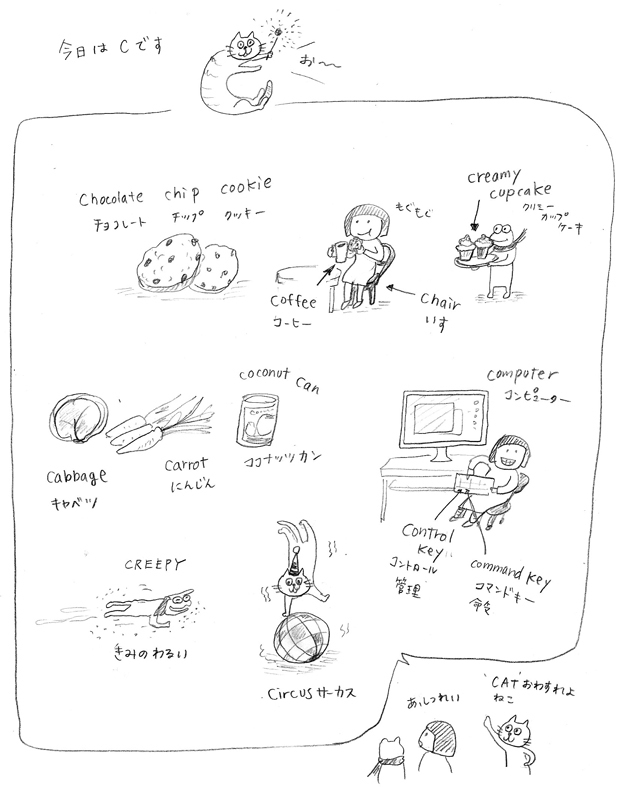 今日は C です
お〜〜
Chocolate chip cookie
チョコレート チップ クッキー
もぐもぐ
creamy
cupcake
クリミー
カップ
ケーキ
Coffee
コーヒー
Chair
いす
coconut can
ココナッツカン
Cabbage
キャベツ
Carrot
にんじん
computer
コンピューター
Control
Key
コントロール
管理
command key
コマンドキー
命令
CREEPY
きみのわるい
Circus サーカス
あ、しつれい
'CAT' おわすれよ
ねこ